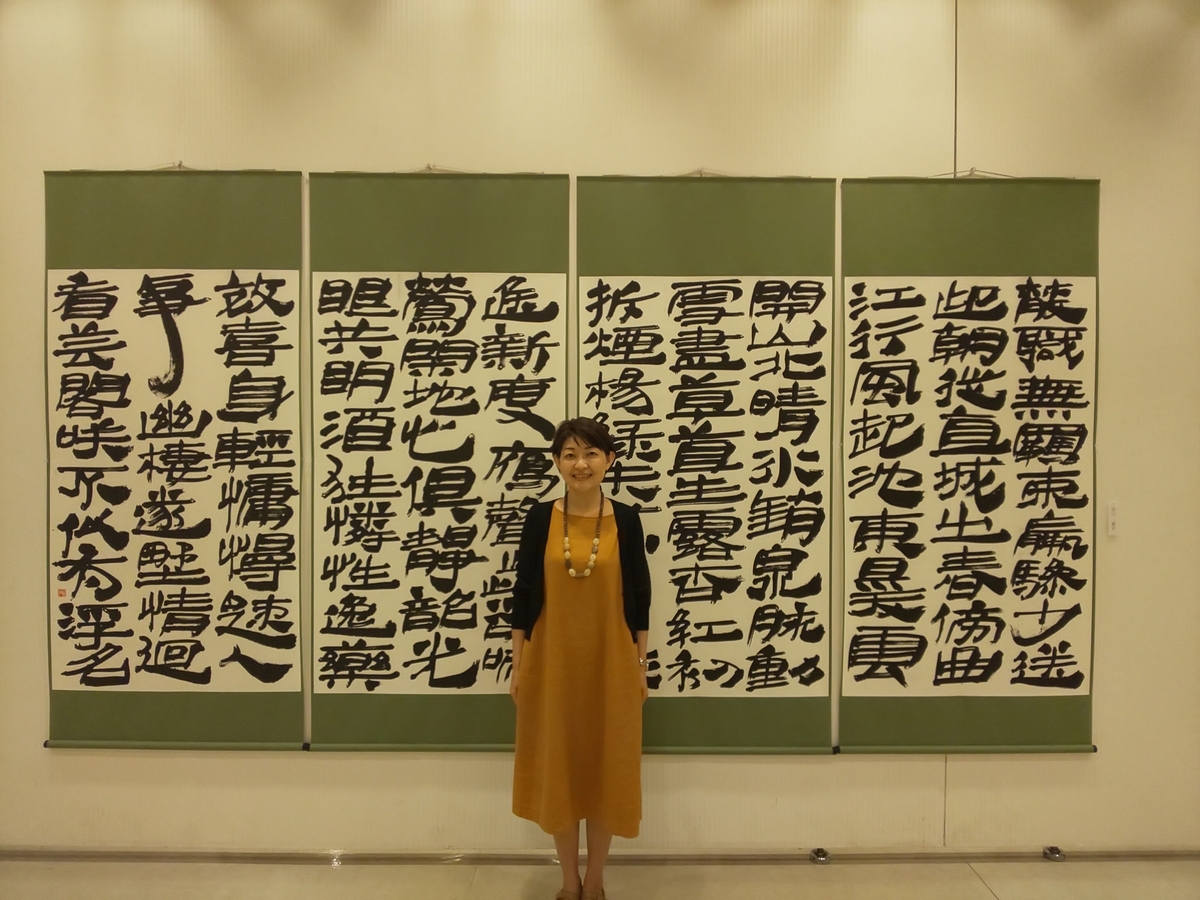 散職無羈束羸驂少送
迎朝從直城出春傍曲
江行風起池東雲
開山北晴氷銷泉脈動
雪盡草生露杏紅初
拆煙楊綠未
遲新度鴈聲
鶯閑地心俱靜韶光
眼共明酒狂憐性逸藥
效喜身輕慵慢疎人
事幽棲逐野情迴
看芸閣咲不似有浮名